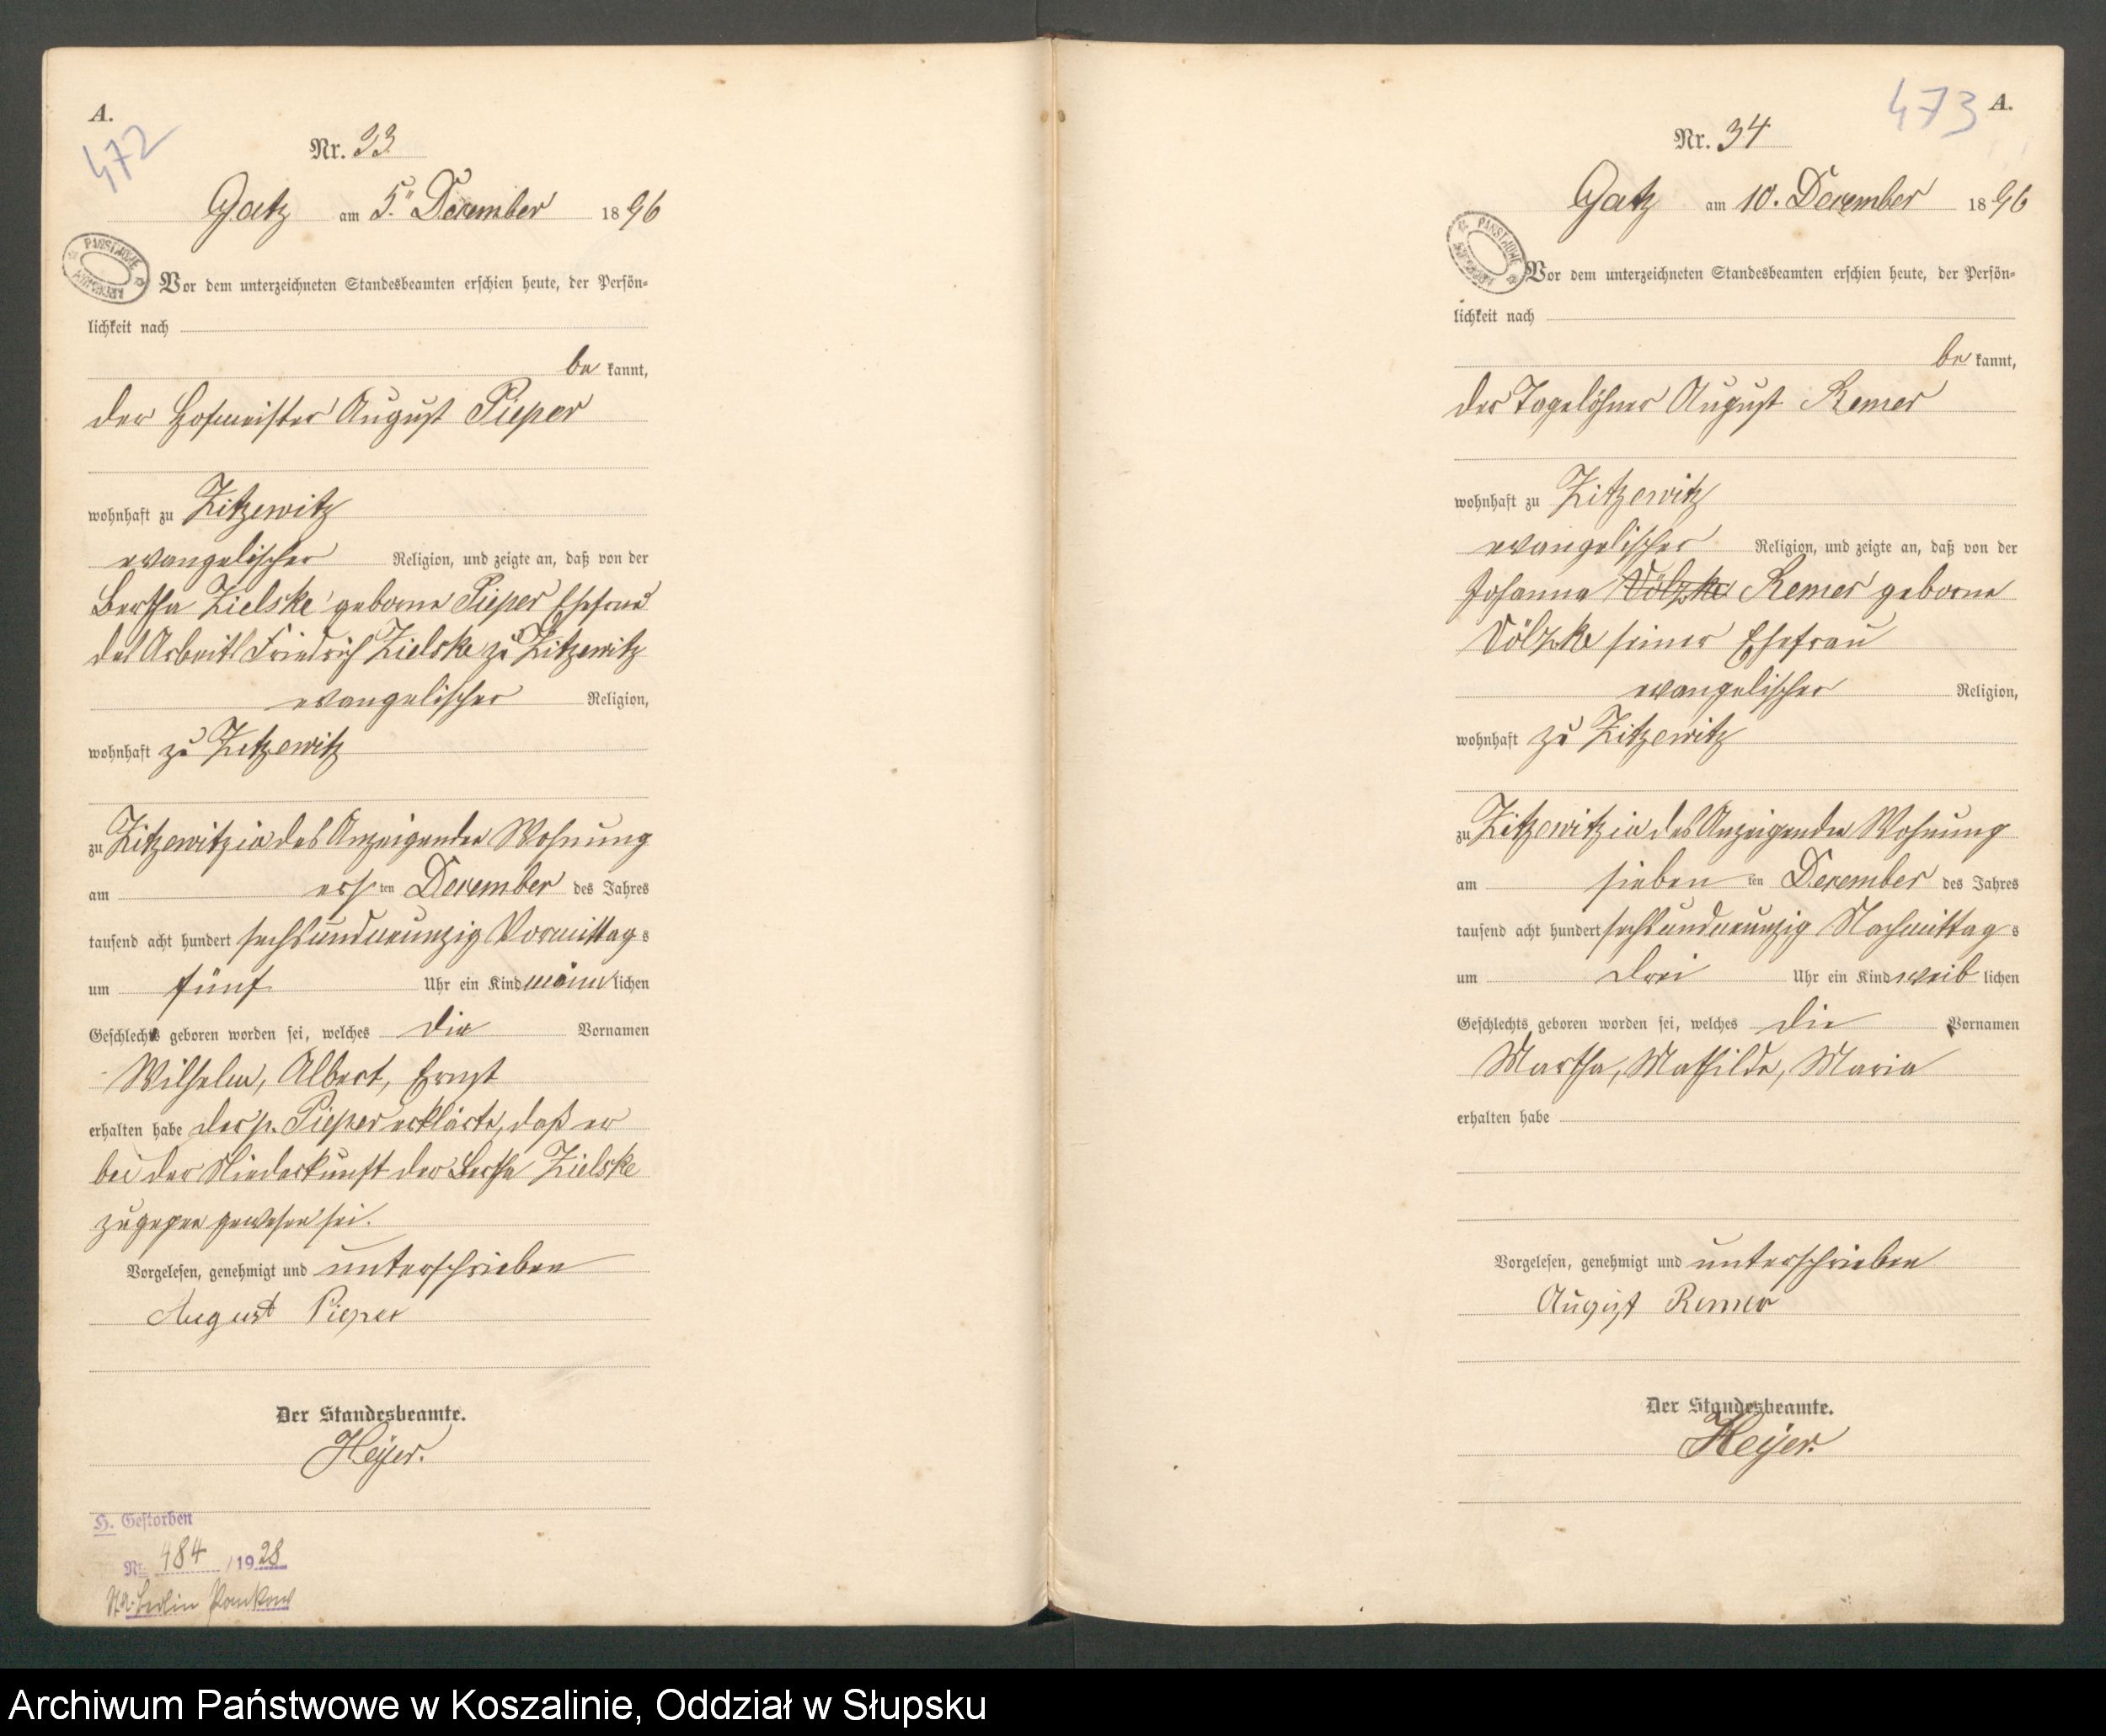 A.
472
Nr. 33
Gatz am 5. December 1896
PAŃSTWOWE ARCHIWUM
Vor dem unterzeichneten Standesbeamten erschien heute, der Persön-
lichkeit nach
be kannt,
der Hofmeister August Pieper
wohnhaft zu Zitzewitz
evangelischer Religion, und zeigte an, daß von der
Bertha Zielske geborne Pieper Ehefrau
des Arbeit. Friedrich Zielske zu Zitzewitz
evangelischer Religion,
wohnhaft zu Zitzewitz
zu Zitzewitz in des Anzeigenden Wohnung
am ersten December des Jahres
tausend acht hundert sechsundneunzig Vormittags
um fünf Uhr ein Kind männlichen
Geschlechts geboren worden sei, welches die Vornamen
Wilhelm, Albert, Ernst
erhalten habe der p. Pieper erklärte, daß er
bei der Niederkunft der Bertha Zielske
zugegen gewesen sei.
Vorgelesen, genehmigt und unterschrieben
August Pieper
Der Standesbeamte.
Heyer.
H. Gestorben
Nr. 484 /1928
St.A. Berlin Pankow
473 A.
Nr. 34
Gatz am 10. December 1896
PAŃSTWOWE ARCHIWUM
Vor dem unterzeichneten Standesbeamten erschien heute, der Persön-
lichkeit nach
be kannt,
der Tagelöhner August Remer
wohnhaft zu Zitzewitz
evangelischer Religion, und zeigte an, daß von der
Johanna Völzke Remer geborne
Völzke seiner Ehefrau
evangelischer Religion,
wohnhaft zu Zitzewitz
zu Zitzewitz in des Anzeigenden Wohnung
am siebenten December des Jahres
tausend acht hundert sechsundneunzig Nachmittags
um drei Uhr ein Kind weiblichen
Geschlechts geboren worden sei, welches die Vornamen
Martha, Mathilde, Maria
erhalten habe
Vorgelesen, genehmigt und unterschrieben
August Remer
Der Standesbeamte.
Heyer.
Archiwum Państwowe w Koszalinie, Oddział w Słupsku